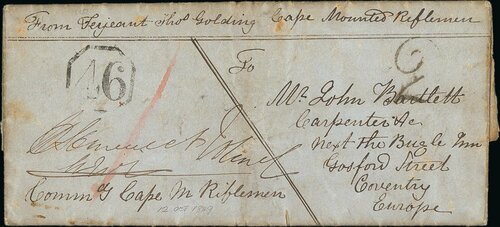 From Serjeant Thos Golding Cape Mounted Riflemen
46
To
Mr. John Bartlett
Carpenter &c
next the Bugle Inn
Gosford Street
Coventry
Europe
Commg Cape M Riflemen
12 OCT 1849